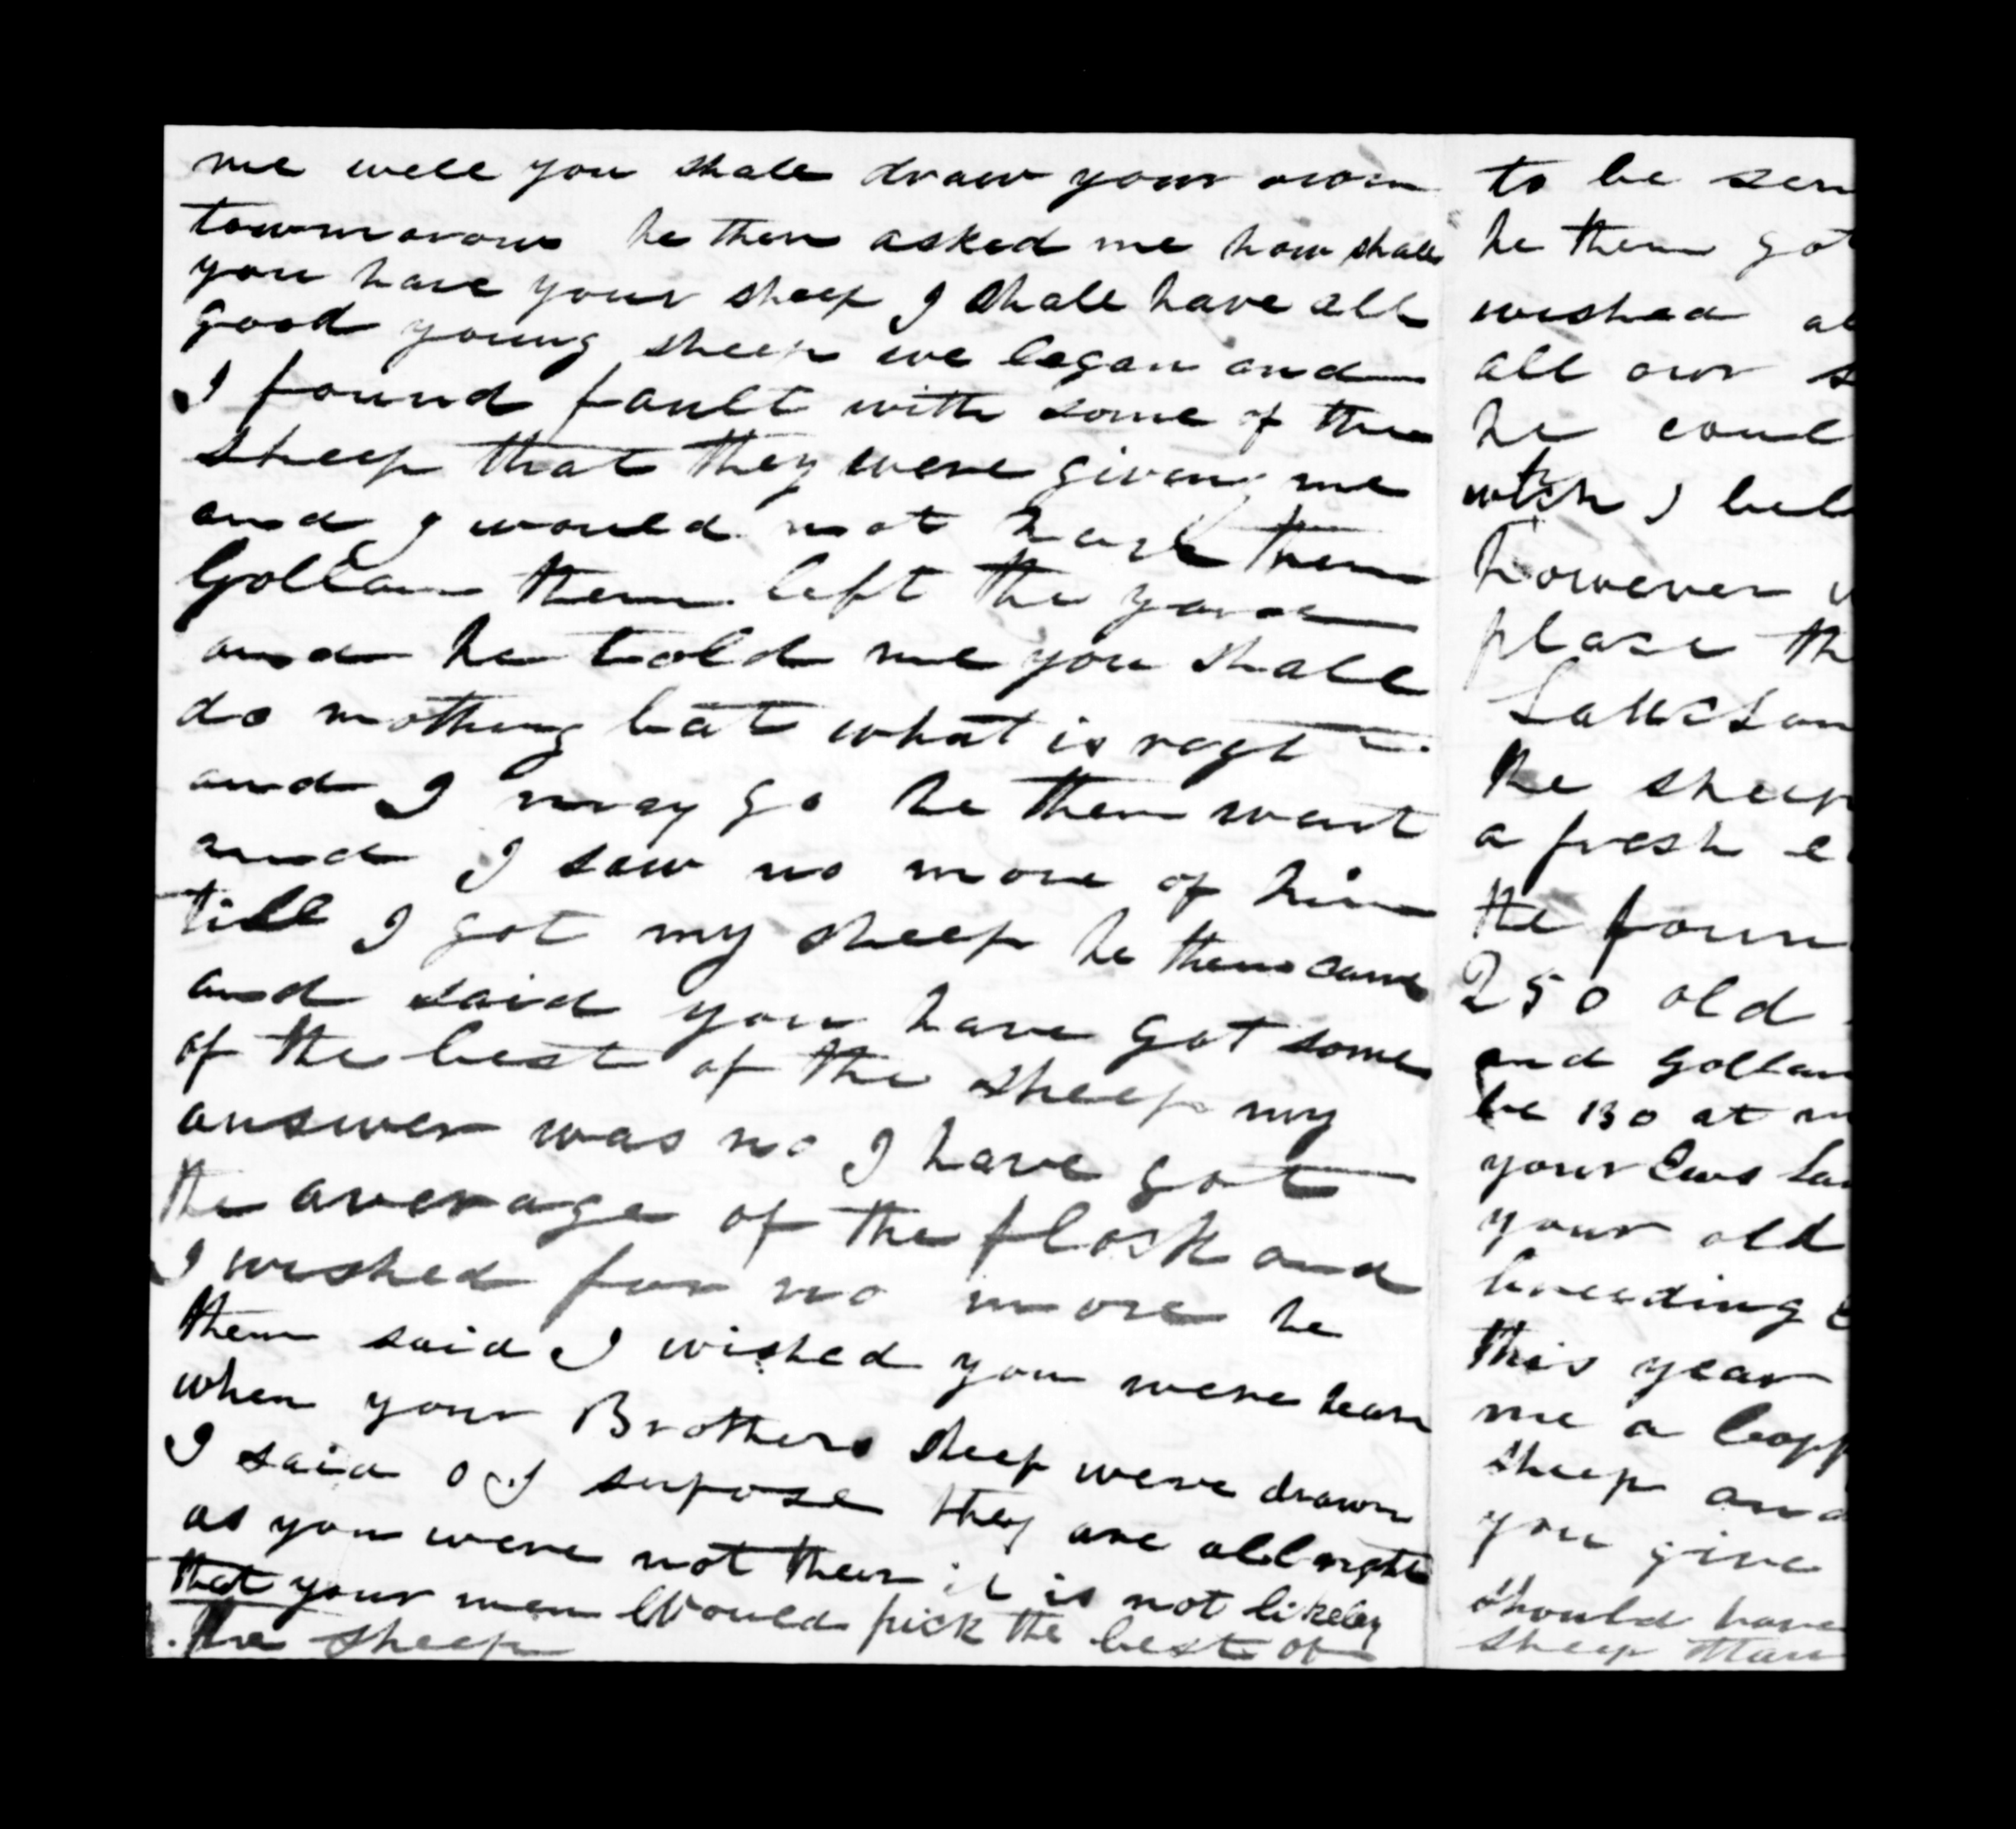 me well you shall draw your own
towmorow he then asked me how shall
you have your sheep I shall have all
good young sheep we began and
I found fault with some of the
sheep that they were giving me
and I would not have them
Gollan then left the yard
and he told me you shall
do nothing but what is reght
and I may go he then went
and I saw no more of him
till I got my sheep he then came
and said you have got some
of the best of the sheep my
answer was no I have got
the average of the flock and
I wished for no more he
then said I wished you were hear
when your Brothers sheep were drawn
I said O I supose they are all reght
as you were not their it is not likeley
that your men Would pick the best of
the sheep
to be
he then got
wished
all our
he
with I
however
place
the sheep
a fresh
the
250 old
and Gollan
be 130 at
your Ews
your old
breeding
this year
me a
sheep and
you give
should have
sheep than